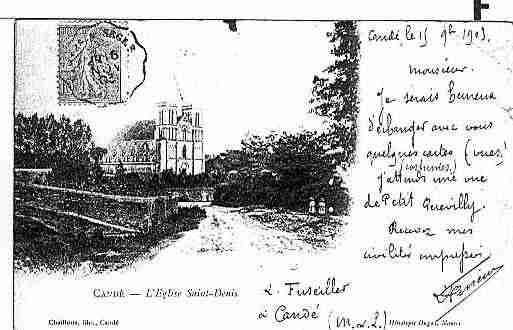 SEGRÉ
Candé, le 15 9bre 1903.
Monsieur.
Je serais heureux
d'échanger avec vous
quelques cartes (vues,
costumes)
j'attends une vue
de Petit Quevilly.
Recevez mes
civilités empressées
CANDÉ — L'Eglise Saint-Denis
L. Fuseiller
à Candé (M. & L.)
Chaillous, libr., Candé